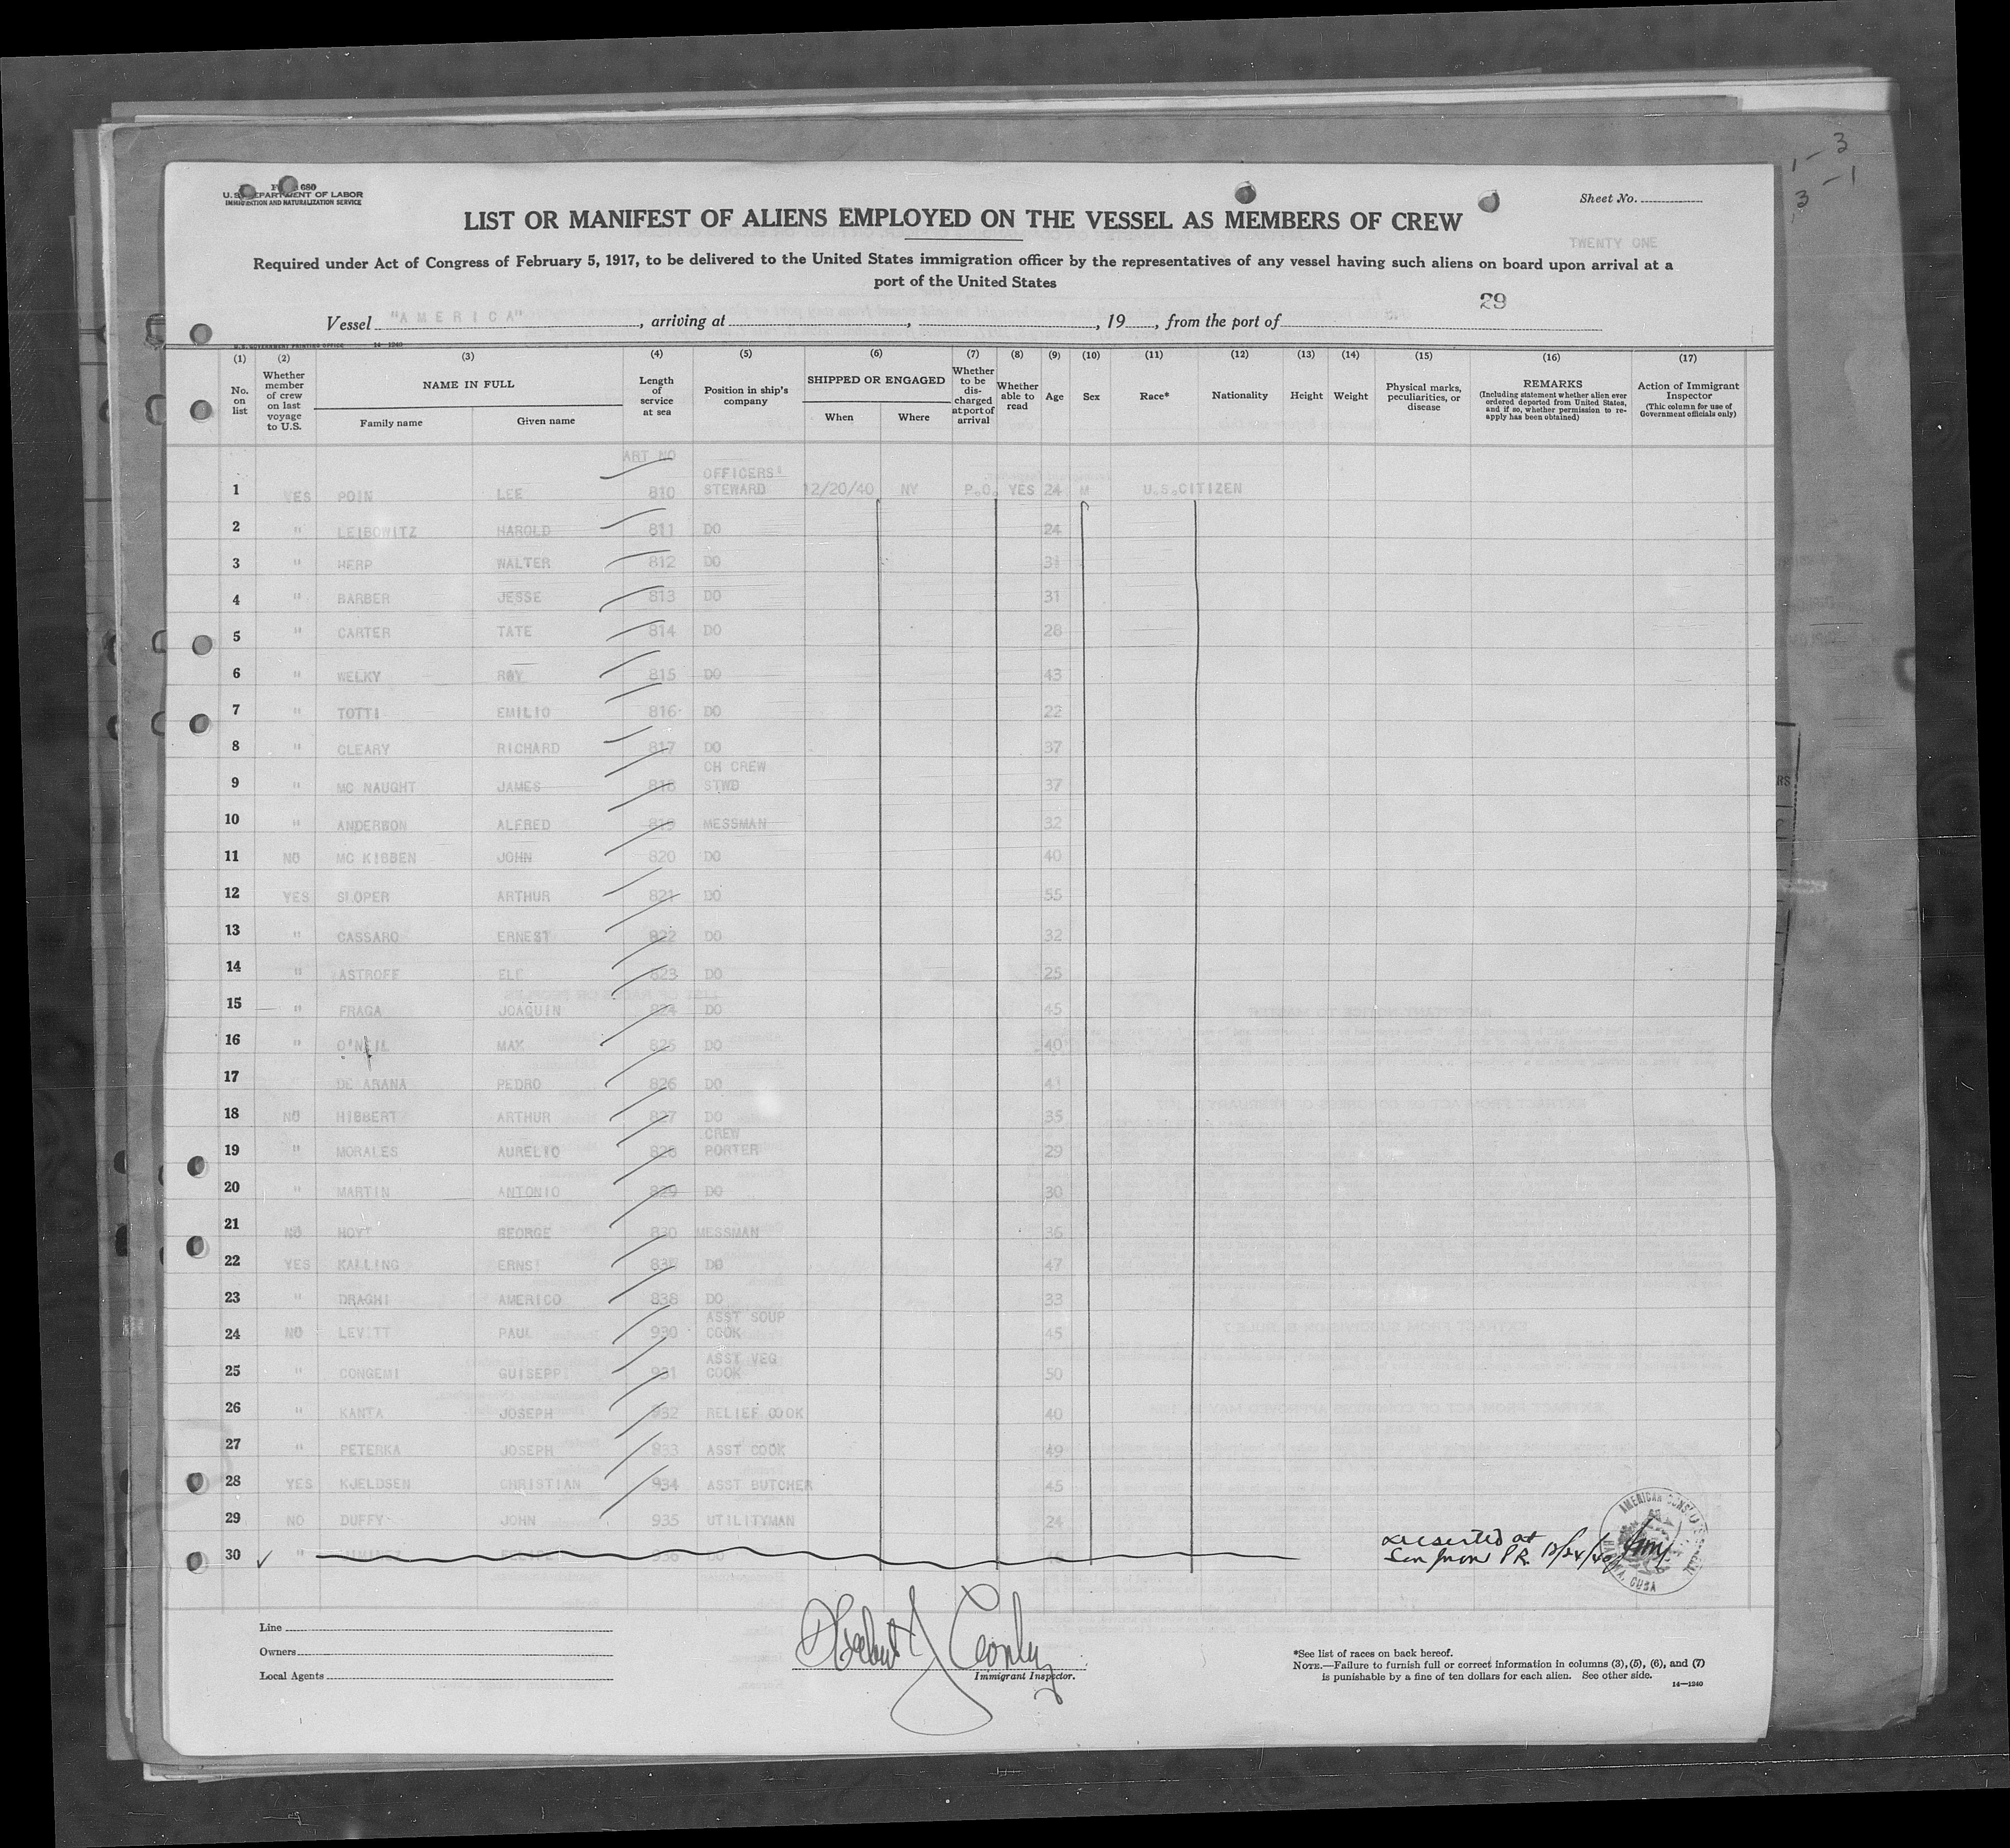 1 - 3
3 - 1
680
U.S. DEPARTMENT OF LABOR
IMMIGRATION AND NATURALIZATION SERVICE
Sheet No.
LIST OR MANIFEST OF ALIENS EMPLOYED ON THE VESSEL AS MEMBERS OF CREW
TWENTY ONE
Required under Act of Congress of February 5, 1917, to be delivered to the United States immigration officer by the representatives of any vessel having such aliens on board upon arrival at a
port of the United States
29
Vessel "AMERICA", arriving at , , 19 , from the port of
U.S. GOVERNMENT PRINTING OFFICE 14—1240
(1) (2) (3) (4) (5) (6) (7) (8) (9) (10) (11) (12) (13) (14) (15) (16) (17)
No. on list
Whether member of crew on last voyage to U.S.
NAME IN FULL
Family name Given name
Length of service at sea
Position in ship's company
SHIPPED OR ENGAGED
When Where
Whether to be discharged at port of arrival
Whether able to read
Age
Sex
Race*
Nationality
Height
Weight
Physical marks, peculiarities, or disease
REMARKS
(Including statement whether alien ever ordered deported from United States, and if so, whether permission to re-apply has been obtained)
Action of Immigrant Inspector
(This column for use of Government officials only)
ART NO
1 YES POIN LEE 810 OFFICERS' STEWARD 12/20/40 NY P.O. YES 24 M U.S.CITIZEN
2 " LEIBOWITZ HAROLD 811 DO 24
3 " HERP WALTER 812 DO 31
4 " BARBER JESSE 813 DO 31
5 " CARTER TATE 814 DO 28
6 " WELKY ROY 815 DO 43
7 " TOTTI EMILIO 816 DO 22
8 " CLEARY RICHARD 817 DO 37
9 " MC NAUGHT JAMES 818 CH CREW STWD 37
10 " ANDERSON ALFRED 819 MESSMAN 32
11 NO MC KIBBEN JOHN 820 DO 40
12 YES SLOPER ARTHUR 821 DO 55
13 " CASSARO ERNEST 822 DO 32
14 " ASTROFF 823 DO 25
15 " FRAGA JOAQUIN 824 DO 45
16 " O'NEIL MAX 825 DO 40
17 " DE ARANA PEDRO 826 DO 41
18 NO HIBBERT ARTHUR 827 DO 35
19 " MORALES AURELIO 828 CREW PORTER 29
20 " MARTIN ANTONIO 829 DO 30
21 NO HOYT GEORGE 830 MESSMAN 36
22 YES KALLING ERNST DO 47
23 " DRAGHI AMERICO 838 DO 33
24 NO LEVITT PAUL 930 ASST SOUP COOK 45
25 " CONGEMI GUISEPPI 931 ASST VEG COOK 50
26 " KANTA JOSEPH 932 RELIEF COOK 40
27 " PETERKA JOSEPH 933 ASST COOK 49
28 YES KJELDSEN CHRISTIAN 934 ASST BUTCHER 45
29 NO DUFFY JOHN 935 UTILITYMAN 24
30 " 936 DO
deserted at
San Juan P.R. 12/24/40
AMERICAN CONSULATE
HAVANA, CUBA
Line
Owners
Local Agents
Immigrant Inspector.
*See list of races on back hereof.
NOTE.—Failure to furnish full or correct information in columns (3), (5), (6), and (7)
is punishable by a fine of ten dollars for each alien. See other side.
14—1240